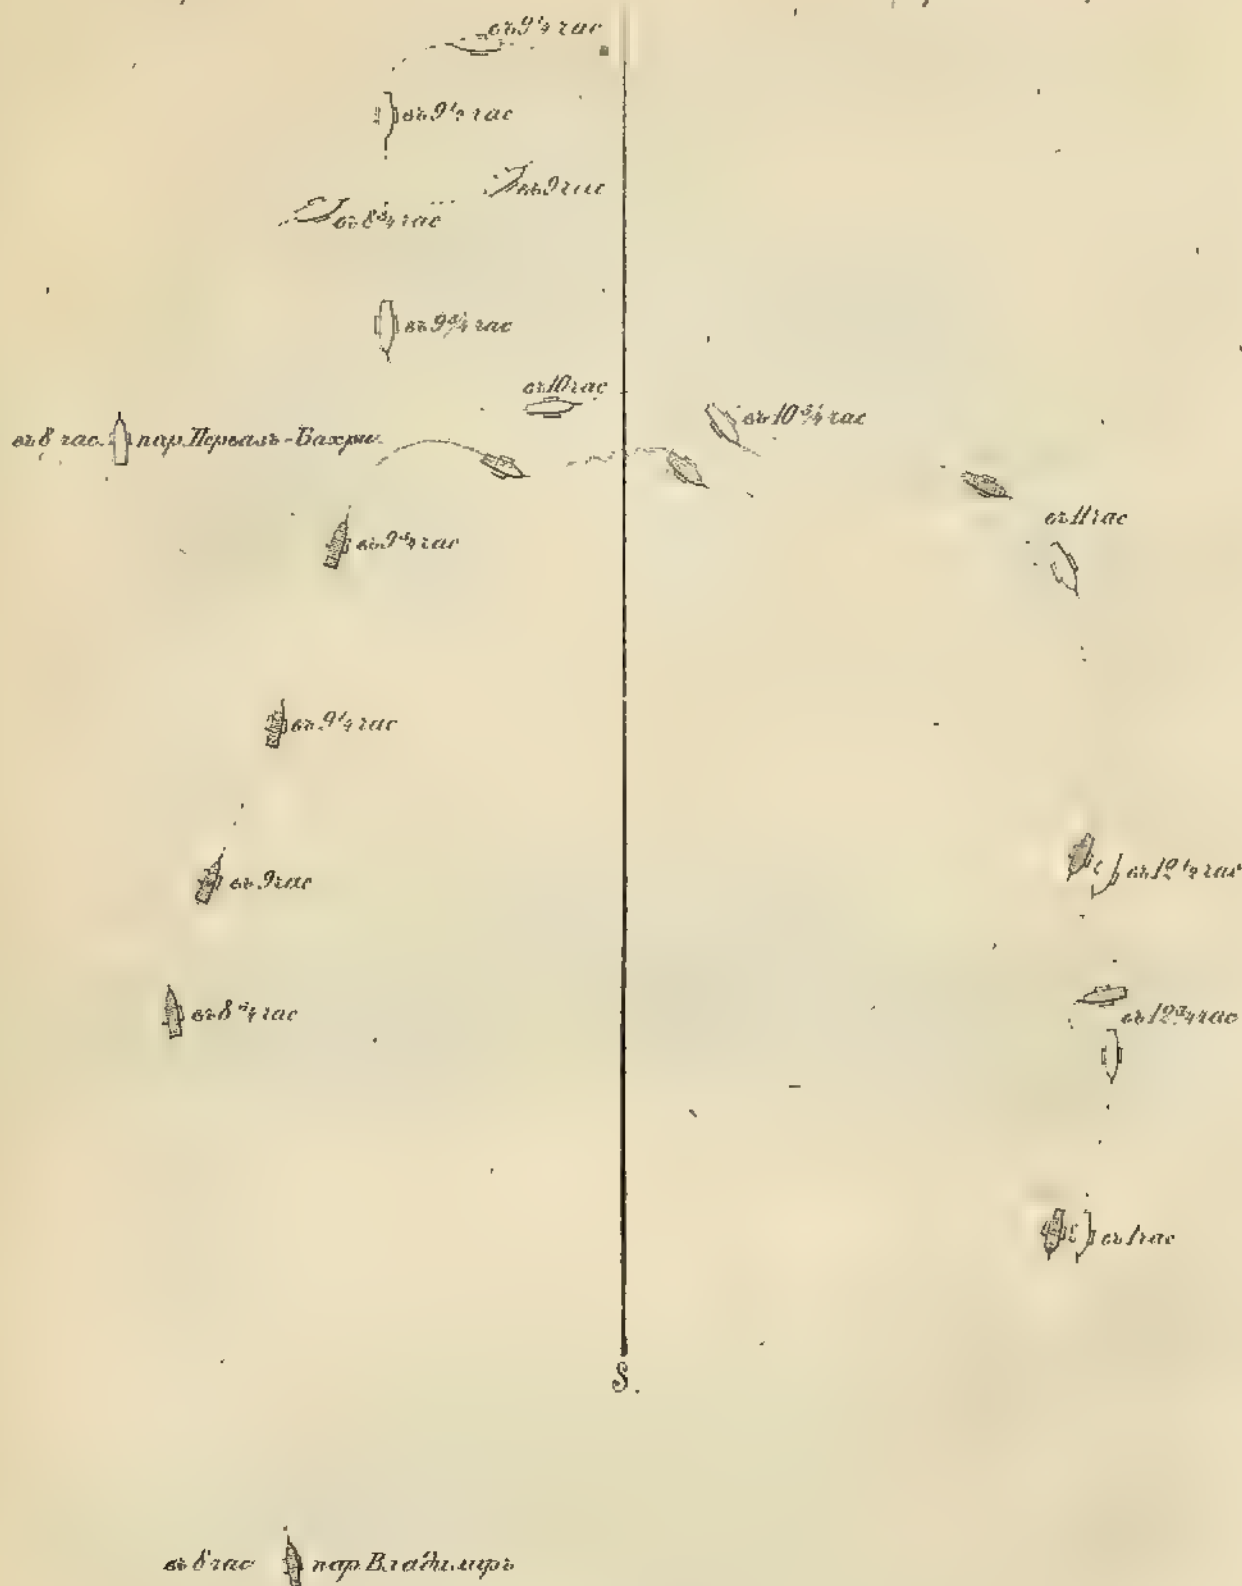 въ 9 1/4 час
въ 9 1/2 час
въ 9 час
въ 8 3/4 час
въ 9 3/4 час
въ 10 час
въ 10 3/4 час
въ 8 час. пар. Перваль-Бахри.
въ 11 час
въ 9 3/4 час
въ 9 1/4 час
въ 12 1/2 час
въ 9 час
въ 8 3/4 час
въ 12 3/4 час
въ 1 час
S.
въ 8 час пар. Владимиръ